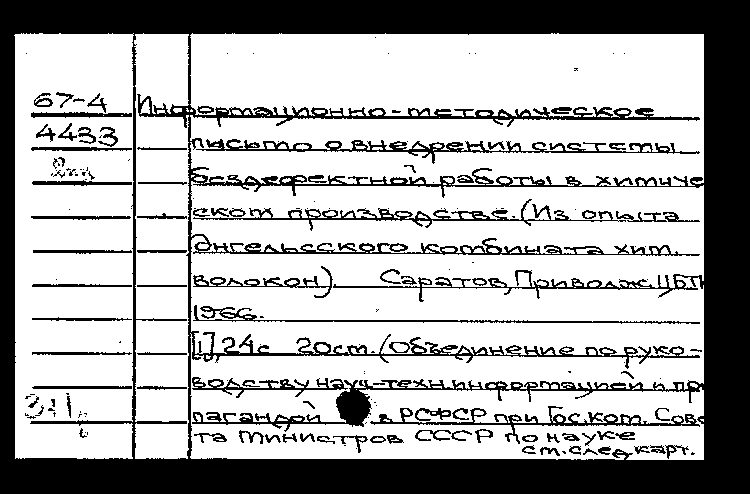 67-4 Информационно-методическое
4433 письмо о внедрении системы
бездефектной работы в химиче
ском производстве. (Из опыта
Энгельсского комбината хим.
волокон). Саратов, Приволж. ЦБТИ
1966.
[1], 24с 20см. (Объединение по руко-
водству науч.-техн. информацией и про
пагандой в РСФСР при Гос. ком. Сове
та Министров СССР по науке
см. след карт.